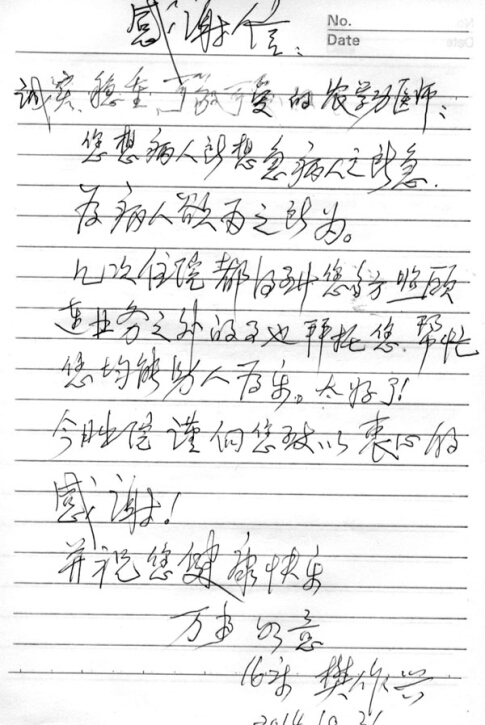 感谢信:
No.
Date
诚实、稳重、可敬可爱的农学万医师:
您想病人所想急病人之所急.
为病人欲为之所为。
几次住院都得到您的照顾
连业务之外的事也拜托您、帮忙
您均能助人为乐。太好了!
今出院谨向您致以衷心的
感谢!
并祝您健康快乐
万事如意
16床 樊作兴
2014.10.21